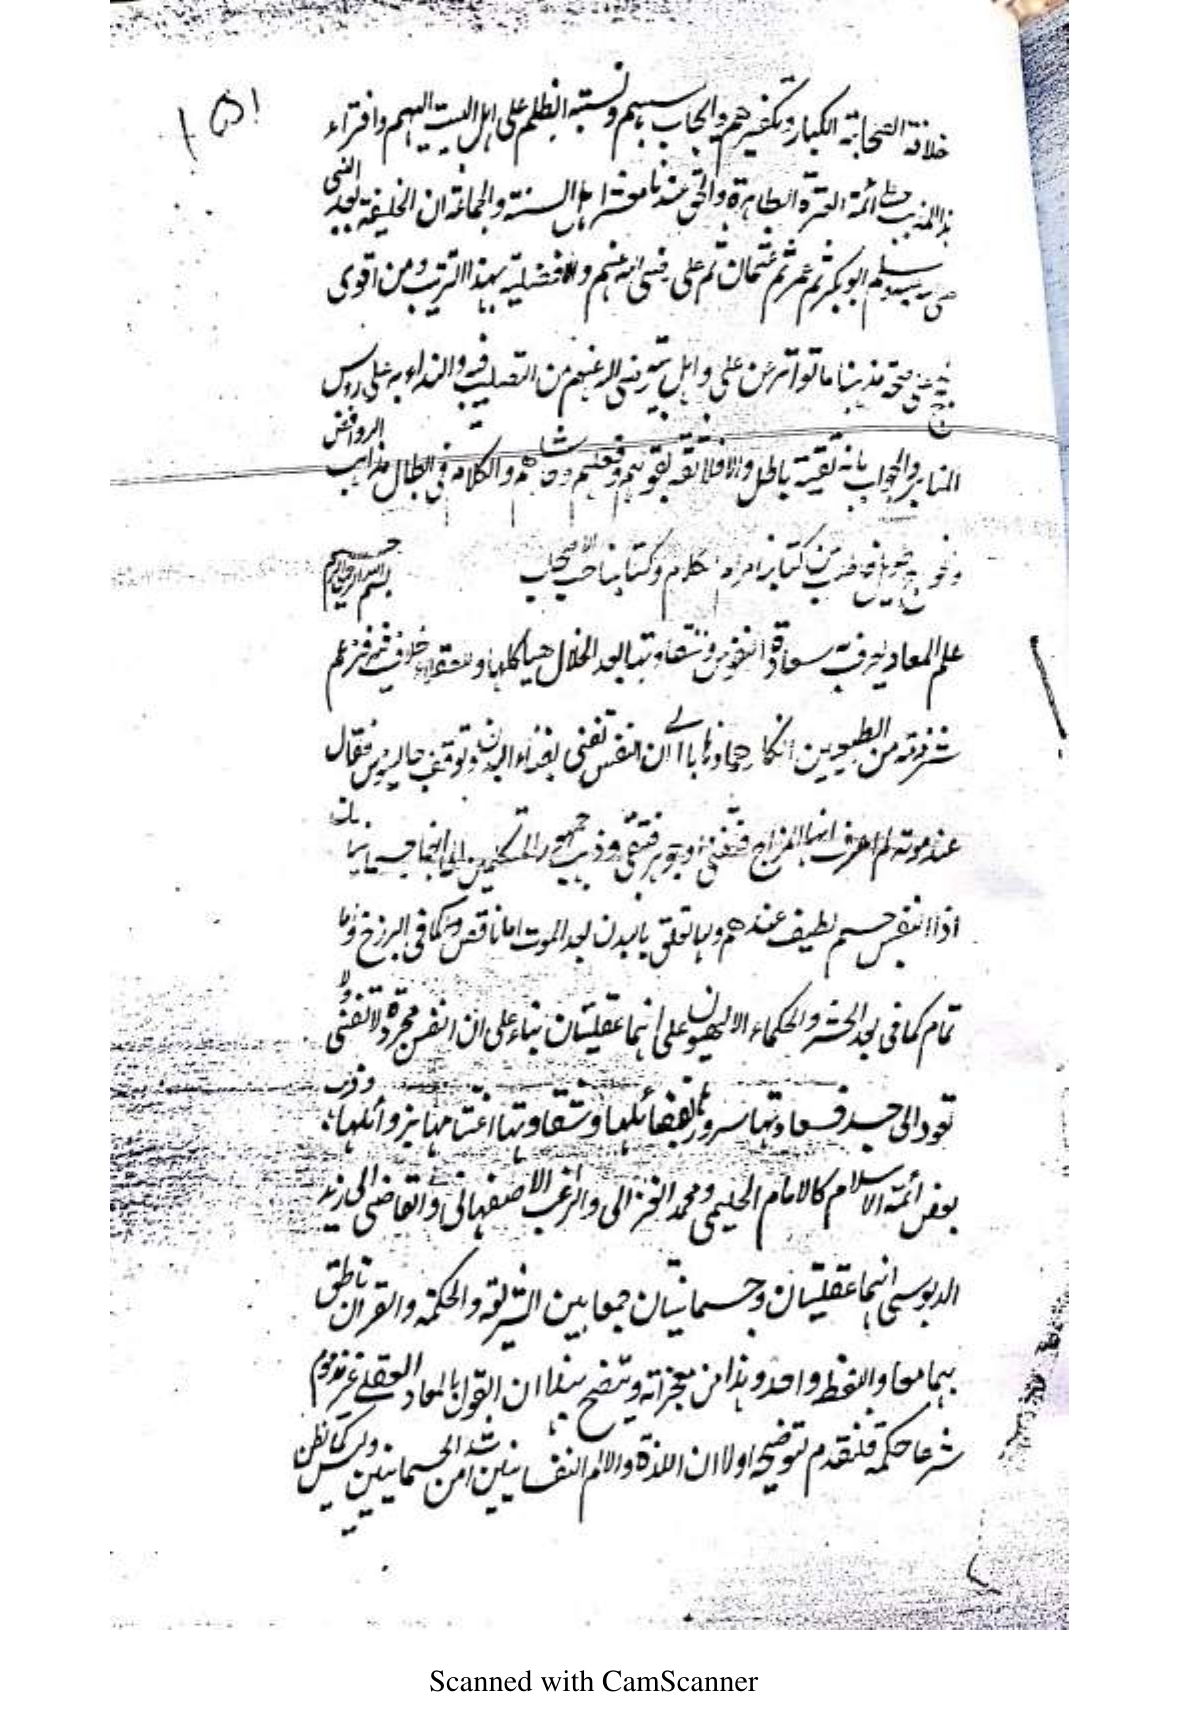 ١٥١
خلافة الصحابة الكبار وتكفيرهم وايجاب سبهم ونسبة الظلم على اهل البيت اليهم وافتراء
هذا المذهب على ائمة العترة الطاهرة والحق عندنا معشر اهل السنة والجماعة ان الخليفة بعد النبى
صلى الله عليه وسلم ابو بكر ثم عمر ثم عثمان ثم على رضى الله عنهم والافضلية بهذا الترتيب ومن اقوى
صحة مذهبنا ما تواتر عن على واهل بيته رضى الله عنهم من التصلب فيه والنداء به على رؤس
المنابر والجواب بانه تقية باطل والا فلا ثقة بقولهم وفعلهم والكلام فى ابطال مذاهب الروافض
كتابنا مرام الكلام وكتابنا
بسم الله الرحمن الرحيم
علم المعاد يعرف به سعادة النفوس وشقاوتها بعد انحلال هياكلها وللعقلاء خلاف فيه فزعم
شرذمة من الطبيعيين انكار معادها بان النفس تفنى بفناء البدن وتوقف جالينوس فقال
عند موته لم اعرف انها المزاج فتفنى او جوهر فتبقى وذهب جمهور المتكلمين الى انهما جسمانيتان
اذ النفس جسم لطيف عندهم ولها تعلق بالبدن بعد الموت اما ناقص كما فى البرزخ واما
تام كما فى بعد الحشر والحكماء الالهيون على انهما عقليتان بناء على ان النفس مجردة لا تفنى ولا
تعود الى جسد فسعادتها سرورها بفضائلها وشقاوتها اغتمامها برذائلها وذهب
بعض ائمة الاسلام كالامام الحليمى ومحمد الغزالى والراغب الاصفهانى والقاضى ابى زيد
الدبوسى انهما عقليتان وجسمانيتان جمعا بين الشريعة والحكمة والقران ناطق
بهما معا واللفظ واحد وهذا من معجزاته ويتضح بهذا ان القول بالمعاد العقلى غير مذموم
شرعا حكمة فلنقدم توضيحه اولا ان اللذة والالم النفسانيين اشد من الجسمانيين وليس كما نظن
Scanned with CamScanner